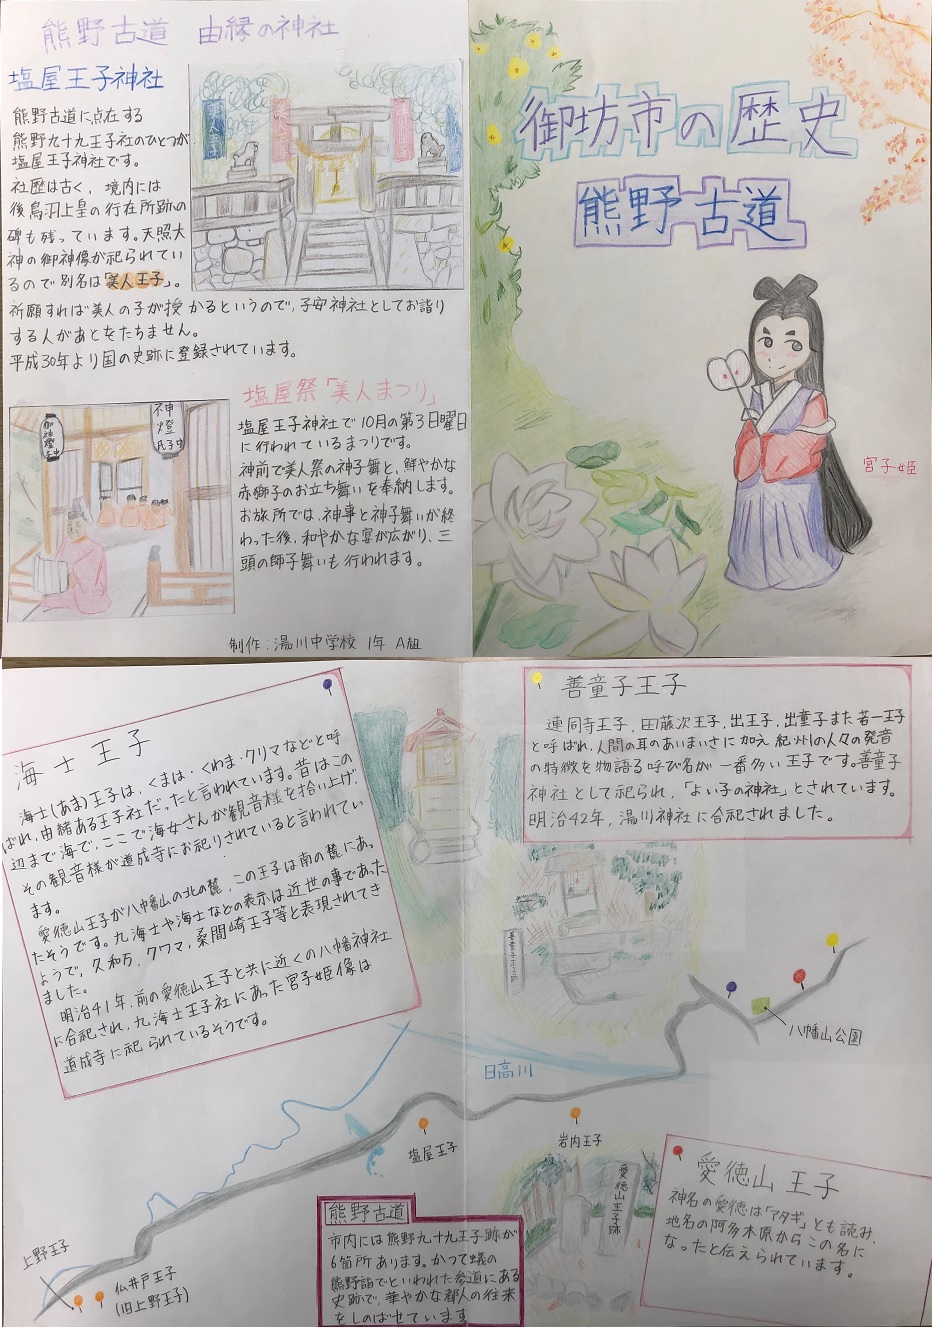 熊野古道 由縁の神社
塩屋王子神社
熊野古道に点在する
熊野九十九王子社のひとつが
塩屋王子神社です。
社歴は古く、境内には
後鳥羽上皇の行在所跡の
碑も残っています。天照大
神の御神像が祀られてい
るので別名は「美人王子」。
祈願すれば美人の子が授かるというので、子安神社としてお詣り
する人があとをたちません。
平成30年より国の史跡に登録されています。
塩屋祭「美人まつり」
塩屋王子神社で10月の第3日曜日
に行われているまつりです。
神前で美人祭の神子舞と、鮮やかな
赤獅子のお立ち舞いを奉納します。
お旅所では、神事と神子舞いが終
わった後、和やかな宴が広がり、三
頭の師子舞いも行われます。
御神燈
神燈
氏子中
制作:湯川中学校 1年 A組
御坊市の歴史
熊野古道
宮子姫
海士王子
海士(あま)王子は、くまは・くわま・クリマなどと呼
ばれ、由緒ある王子社だったと言われています。昔はこの
辺まで海で、ここで海女さんが観音様を拾い上げ、
その観音様が道成寺にお祀りされていると言われてい
ます。
愛徳山王子が八幡山の北の麓、この王子は南の麓にあっ
たそうです。九海士や海士などの表示は近世の事であった
ようで、久和万、クワマ、桑間崎王子等と表現されてき
ました。
明治41年、前の愛徳山王子と共に近くの八幡神社
に合祀され、九海士王子社にあった宮子姫像は
道成寺に祀られているそうです。
善童子王子
連同寺王子、田藤次王子、出王子、出童子また若一王子
と呼ばれ、人間の耳のあいまいさに加え紀州の人々の発音
の特徴を物語る呼び名が一番多い王子です。善童子
神社として祀られ、「よい子の神社」とされています。
明治42年、湯川神社に合祀されました。
善童子王子跡
八幡山公園
日高川
塩屋王子
岩内王子
上野王子
仏井戸王子
(旧上野王子)
熊野古道
市内には熊野九十九王子跡が
6箇所あります。かつて蟻の
熊野詣でといわれた参道にある
史跡で、華やかな都人の往来
をしのばせています
愛徳山王子跡
愛徳山王子
神名の愛徳は「アタギ」とも読み、
地名の阿多木原からこの名に
なったと伝えられています。